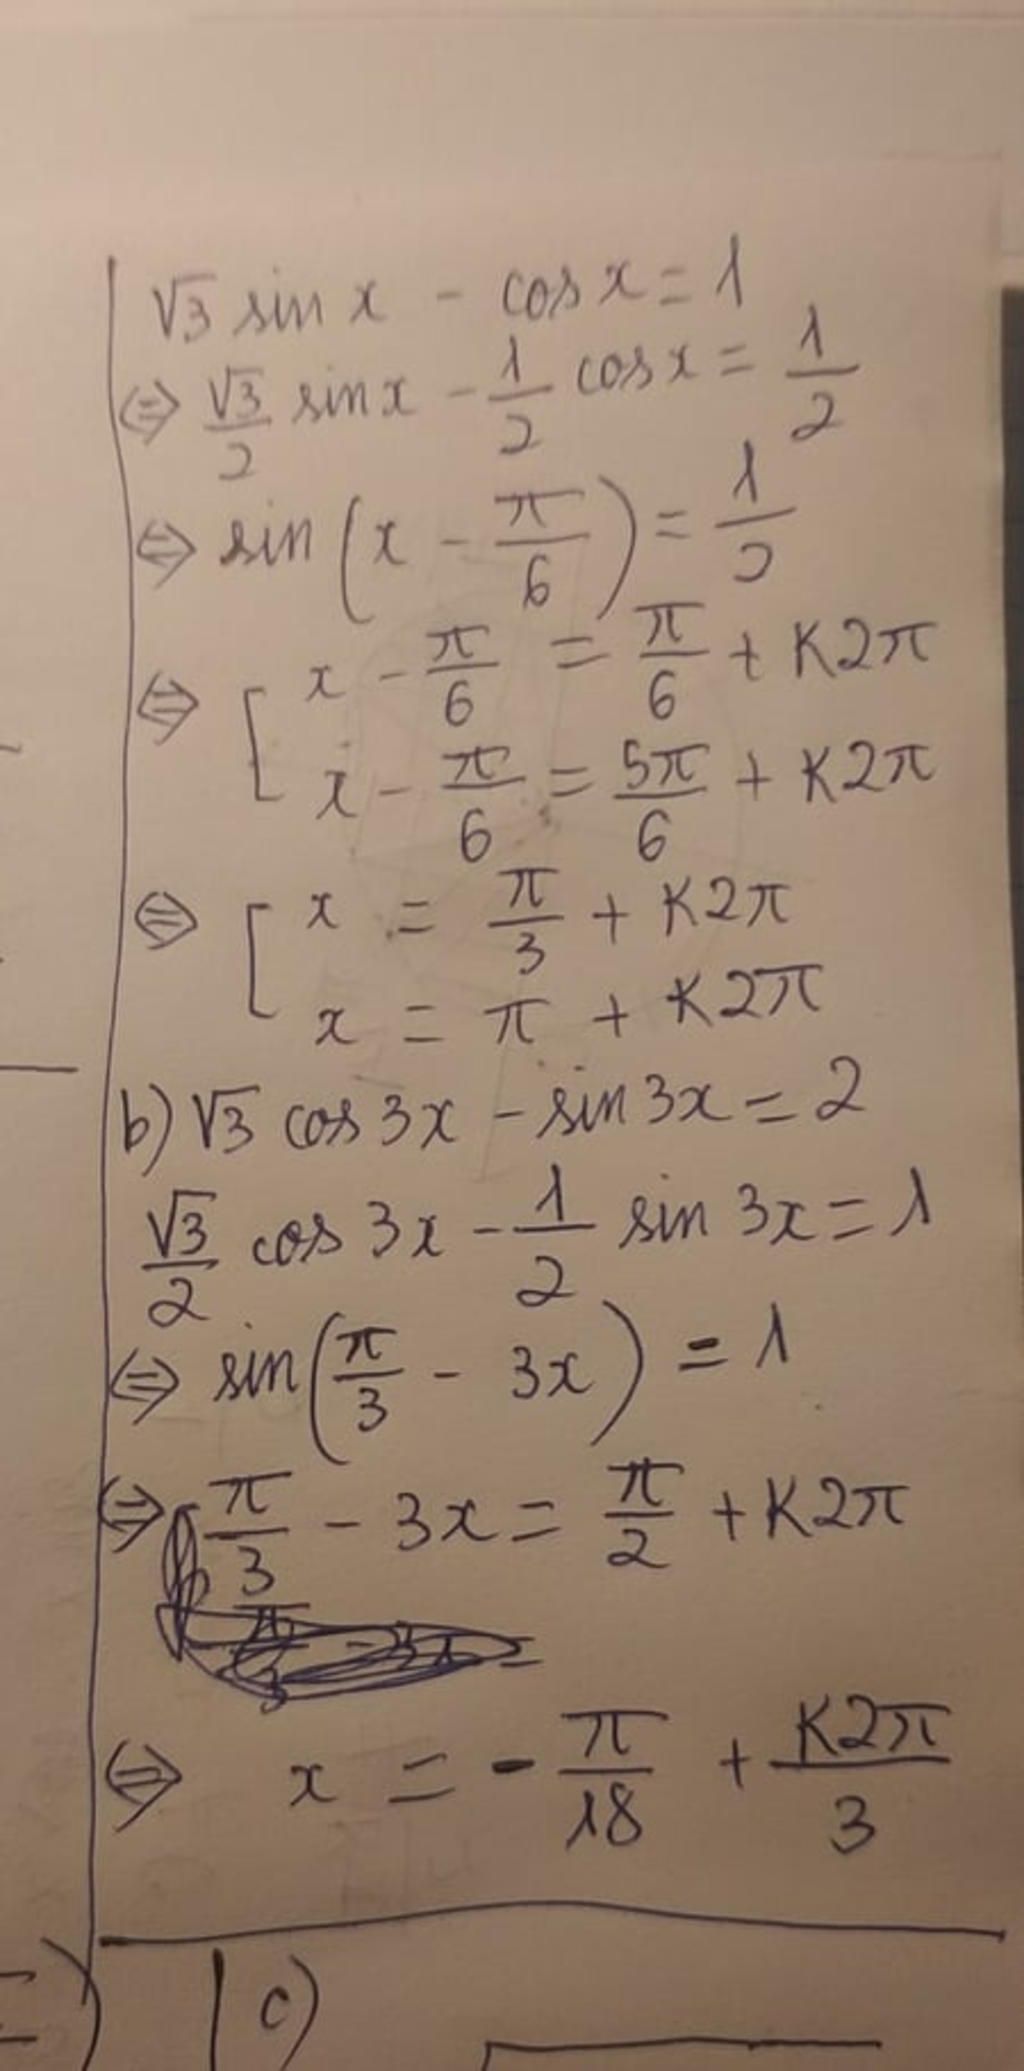 √3 sin x - cos x = 1
⇔ √3/2 sin x - 1/2 cos x = 1/2
⇔ sin (x - π/6) = 1/2
⇔ [ x - π/6 = π/6 + K2π
x - π/6 = 5π/6 + K2π
⇔ [ x = π/3 + K2π
x = π + K2π
b) √3 cos 3x - sin 3x = 2
√3/2 cos 3x - 1/2 sin 3x = 1
⇔ sin (π/3 - 3x) = 1
⇔ π/3 - 3x = π/2 + K2π
⇔ x = - π/18 + K2π/3
c)